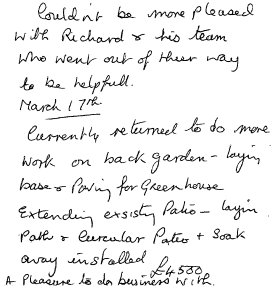 Couldn't be more pleased
with Richard & his team
who went out of their way
to be helpfull.
March 17th.
Currently returned to do more
work on back garden - layin
base & Paving for Greenhouse
Extending exsisty Patio - layin
Path & Curcular Patio + Soak
away installed £4500
A Pleasure to do business with.